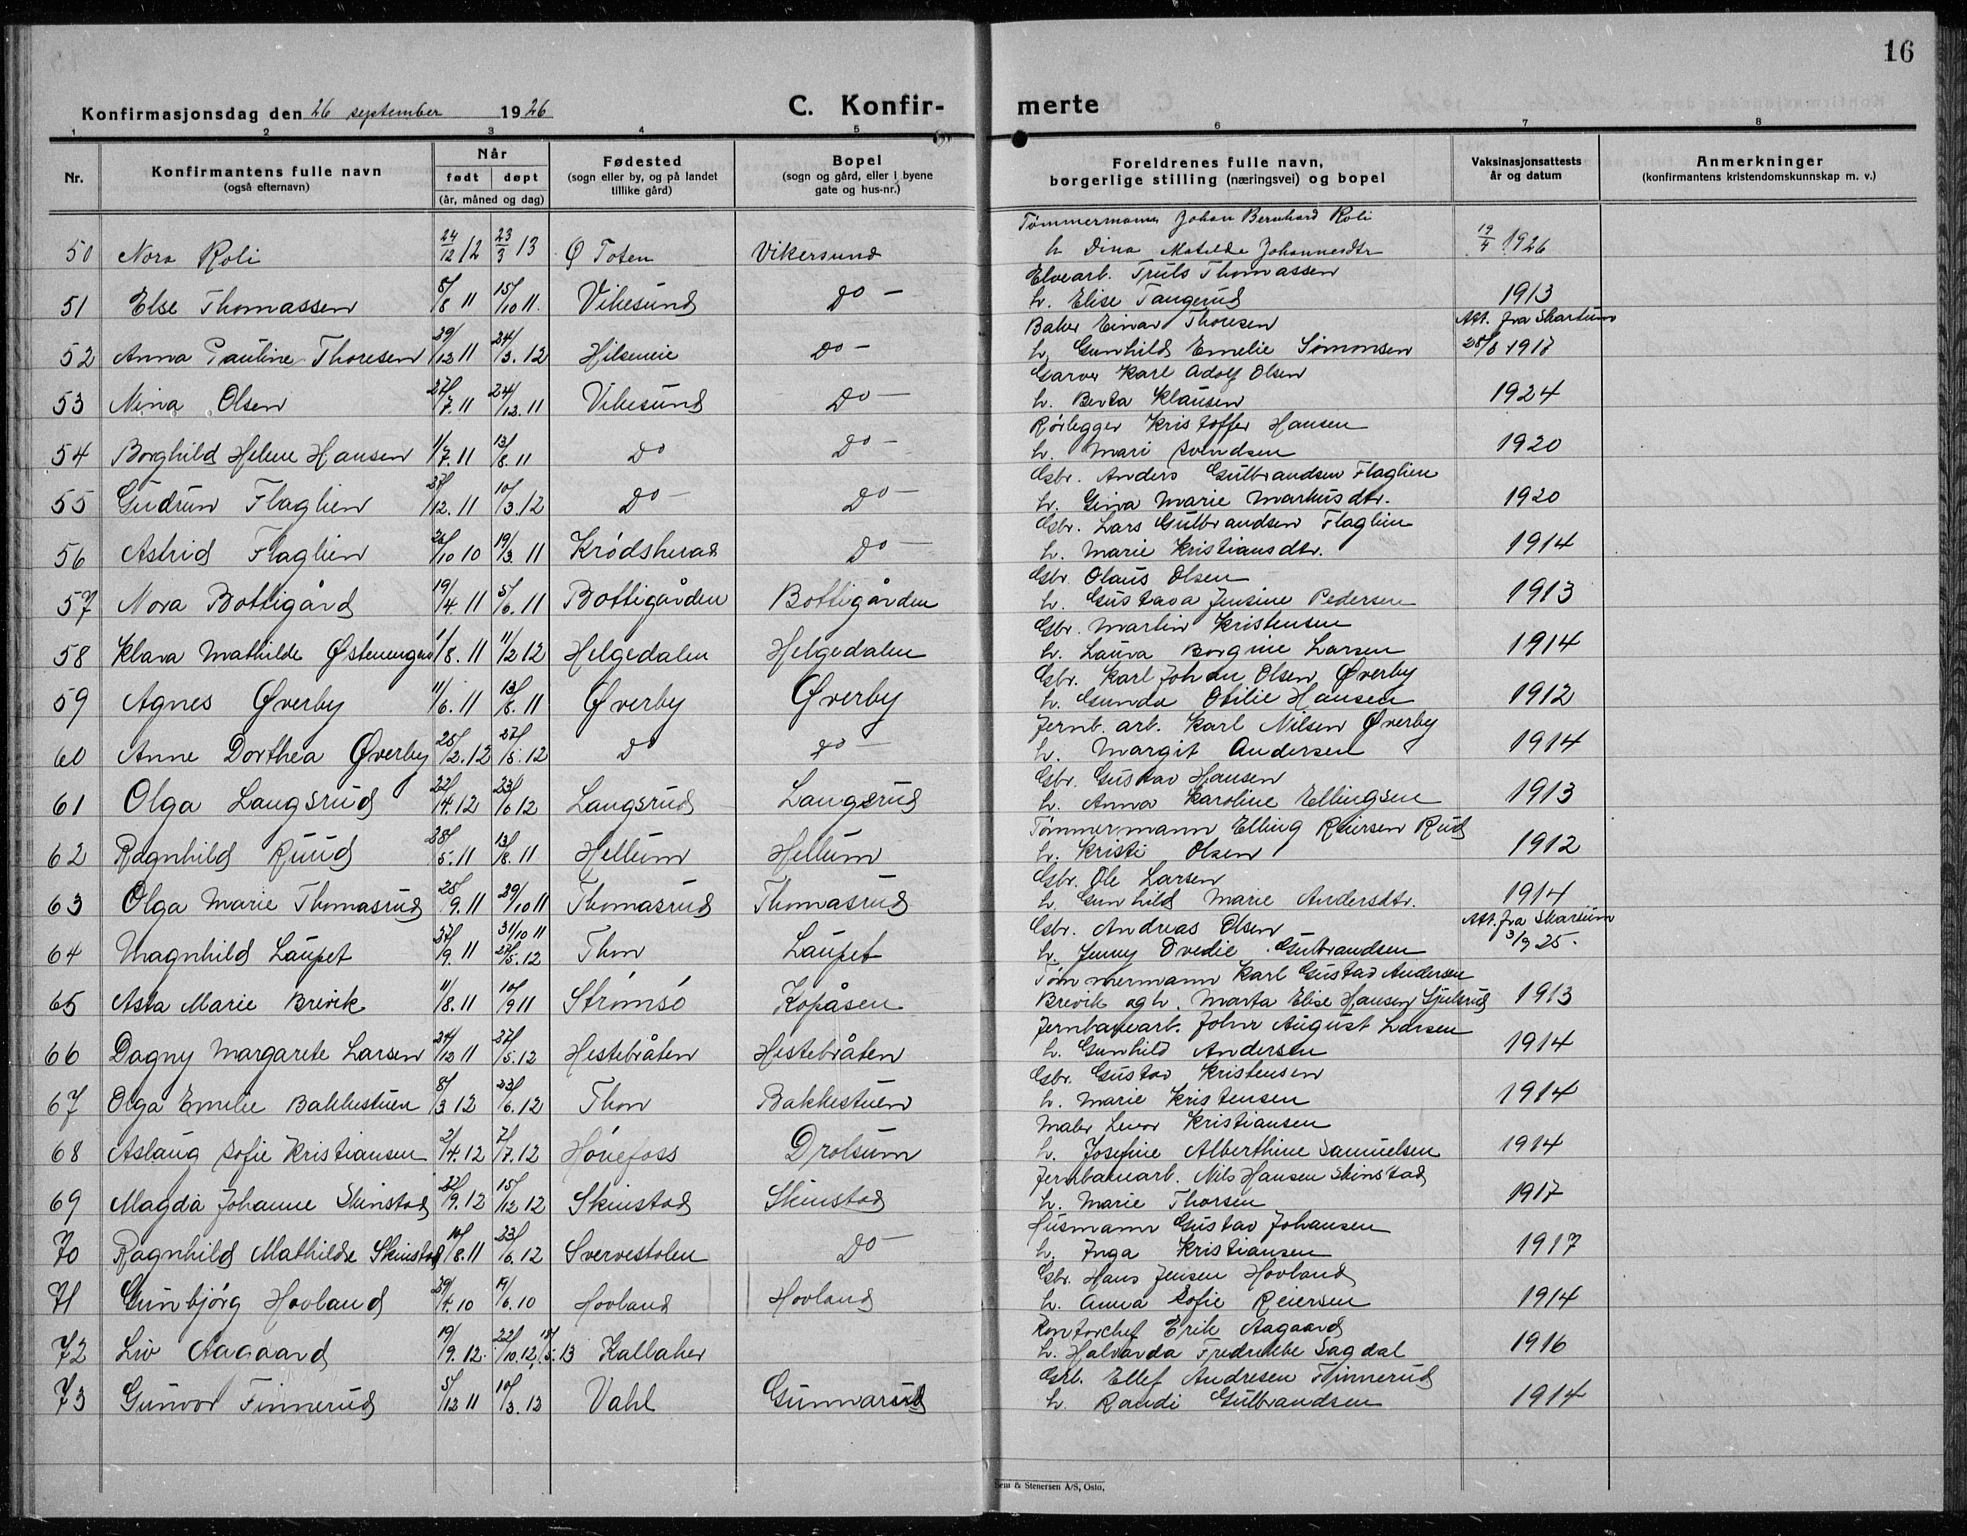 16
Konfirmasjonsdag den 26 september 1926 C. Konfirmerte
1 2 3 4 5 6 7 8
Nr. Konfirmantens fulle navn (også efternavn) Når født døpt (år, måned og dag) Fødested (sogn eller by, og på landet tillike gård) Bopel (sogn og gård, eller i byene gate og hus-nr.) Foreldrenes fulle navn, borgerlige stilling (næringsvei) og bopel Vaksinasjonsattests år og datum Anmerkninger (konfirmantens kristendomskunnskap m. v.)
50 Nora Roli 24/12 12 23/3 13 Ø Toten Vikersund Tømmermann Johan Bernhard Roli
h Dina Matilde Johannesdtr 19/4 1926
51 Else Thomassen 8/8 11 15/10 11. Vikesund Do - Elvearb. Truls Thomassen
h. Elise Tangerud 1913
52 Anna Pauline Thoresen 29/12 11 24/3. 12 Hilseneie Do - Baker Einar Thoresen
h. Gunhild Emelie Simonsen Att. fra Skartum 28/8 1917
53 Nina Olsen 27/7. 11 24/12. 11 Vikesund Do - Garver Karl Adolf Olsen
h. Berta Klausen 1924
54 Borghild Helene Hansen 1/7. 11 13/8. 11 Do Do - Rørlegger Kristoffer Hansen
h. Mari Svendsen 1920
55 Gudrun Flaglien 27/12. 11 10/3. 12 Do - Do - Gbr. Anders Gulbrandsen Flaglien
h. Gina Marie Markusdtr. 1920
56 Astrid Flaglien 26/10 10 19/3. 11 Krødsherad Do - Gbr. Lars Gulbrandsen Flaglien
h. Marie Kristiansdtr. 1914
57 Nora Bottigård 19/4 11 5/6. 11 Bottigården Bottigården Gbr. Olaus Olsen
h. Gustava Jensine Pedersen 1913
58 Klara Mathilde Østenengen 1/8. 11 11/2 12 Helgedalen Helgedalen Gbr. Martin Kristensen
h. Laura Borgine Larsen 1914
59 Agnes Øverby 11/6. 11 13/8. 11 Øverby Øverby Gbr. Karl Johan Olsen Øverby
h. Gunda Otilie Hansen 1912
60 Anne Dorthea Øverby 25/2. 12 27/5. 12 Do Do - Jernb. arb. Karl Nilsen Øverby
h. Margit Andersen 1914
61 Olga Langsrud 22/4. 12 23/6 12 Langsrud Langsrud Gbr. Gustav Hansen
h. Anna Karoline Ellingsen 1913
62 Ragnhild Ruud 28/5. 11 13/8. 11 Hellum Hellum Tømmermann Elling Reiersen Rud
h. Kristi Olsen 1912
63 Olga Marie Thomasrud 25/9. 11 29/10 11 Thomasrud Thomasrud Gbr. Ole Larsen
h. Gunhild Marie Andersdtr. 1914
64 Magnhild Laupet 27/9. 11 31/10 11 27/5. 12 Thon Laupet Gbr. Andreas Olsen
h. Jenny Ovedie Gulbrandsen Att. fra Skartum 3/9 25.
65 Asta Marie Brevik 11/8. 11 10/9 11 Strømsø Kopåsen Tømmermann Karl Gustav Andersen
Brevik og h. Marta Elise Hansen 1913
66 Dagny Margarete Larsen 24/12 11 27/5. 12 Hestebråten Hestebråten Jernbanearb. Johan August Larsen
h. Gunhild Andersen 1914
67 Olga Emelie Bakkestuen 8/3 12 23/6. 12 Thon Bakkestuen Gbr. Gustav Kristensen
h. Marie Kristensen 1914
68 Aslaug Sofie Kristiansen 2/4. 12 7/7. 12 Hønefoss Drolsum Maler Kristiansen
h. Josefine Alberthine Samuelsen 1914
69 Magda Johanne Skinstad 22/9. 12 15/12 12 Skinstad Skinstad Jernbanearb. Nils Hansen Skinstad
h. Marie Thorsen 1917
70 Ragnhild Mathilde Skinstad 10/8. 11 23/6. 12 Svervestolen Do - Husmann Gustav Johansen
h. Inga Kristiansen 1917
71 Gunbjörg Hovland 29/4. 10 19/6. 10 Hovland Hovland Gbr. Hans Jensen Hovland
h. Anna Sofie Reiersen 1914
72 Liv Aagaard 19/9. 12. 22/10. 12, 18/5. 13 Kallaker Kontorchef Erik Aagaard
h. Halvarda Fredrikke Sagdal 1916
73 Gunvor Finnerud 5/12 11 10/3. 12 Vahl Gunnarsrud Grb. Ellef Andresen Finnerud
h. Randi Gulbrandsen 1914
Sem & Stenersen A/S, Oslo,